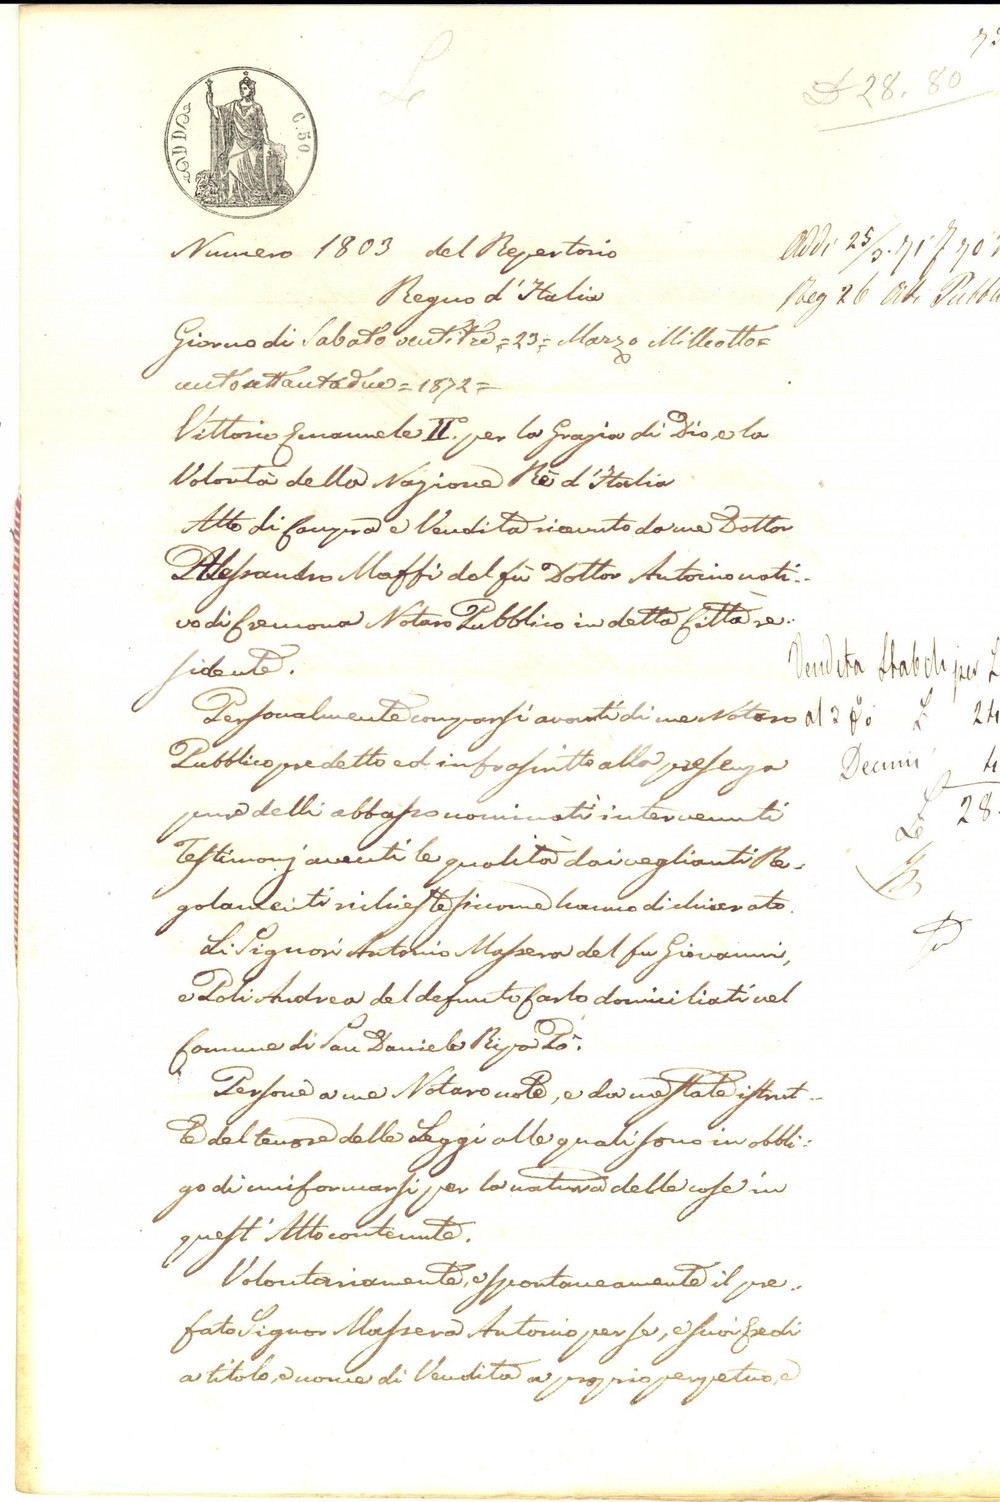 C. 50.
28. 80
Numero 1803 del Repertorio
Regno d'Italia
Giorno di Sabato ventitre = 23 = Marzo Milleotto=
centosettantadue = 1872 =
Vittorio Emanuele II. per la Grazia di Dio e la
Volontà della Nazione Rè d'Italia
Atto di Compra e Vendita ricevuto da me Dottor
Alessandro Maffi del fù Dottor Antonio nati-
vo di Cremona Notaro Pubblico in detta Città re-
sidente.
Personalmente comparsi avanti di me Notaro
Pubblico predetto ed infrascritto alla presenza
pure delli abbasso nominati intervenuti
Testimonj aventi le qualità dai veglianti Re-
golamenti richieste siccome hanno dichiarato.
Li Signori Antonio Massera del fu Giovanni,
e Poli Andrea del defunto Carlo domiciliati nel
Comune di San Daniele Ripa Pò.
Persone a me Notaro note, e da me state istrut-
te del tenore delle Leggi alle quali sono in obbli-
go di uniformarsi per la natura delle cose in
quest'Atto contenute.
Volontariamente, e spontaneamente il pre-
fato Signor Massera Antonio per se, e suoi Eredi
a titolo, e nome di Vendita a proprio perpetuo, e
Addi 25/3
Reg 26 Atti Pubbl
Vendita Stabili per L
al 2 % L 24
Decimi 4
28.